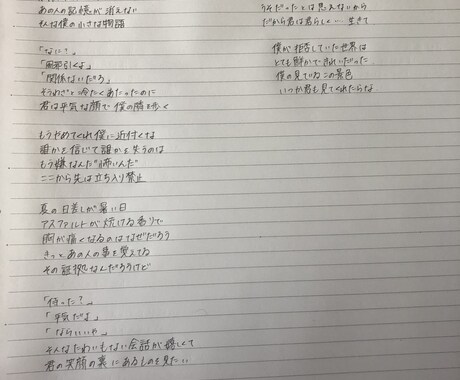 あの人の記憶が消えない
そんな僕の小さな物語
「なに？」
「風邪引くよ」
「関係ないだろ」
そうやって冷たくあたったのに
君は平気な顔で僕の隣を歩く
もうやめてくれ僕に近付くな
誰かを信じて誰かを失うのは
もう嫌なんだ 怖いんだ
ここから先は立ち入り禁止
夏の日差しが暑い日
アスファルトが焼ける香りで
胸が痛くなるのはなぜだろう
きっとあの人の事を覚えてる
その証拠なんだろうけど
「待った？」
「平気だよ」
「ならいいや」
そんなたわいもない会話が嬉しくて
君の笑顔の裏にあるものを見たい
うそだったとは思えないから
だから君は君らしく… 生きて
僕が拒否していた世界は
とても鮮やできれいだった
僕の見ているこの景色
いつか君も見てくれたらな